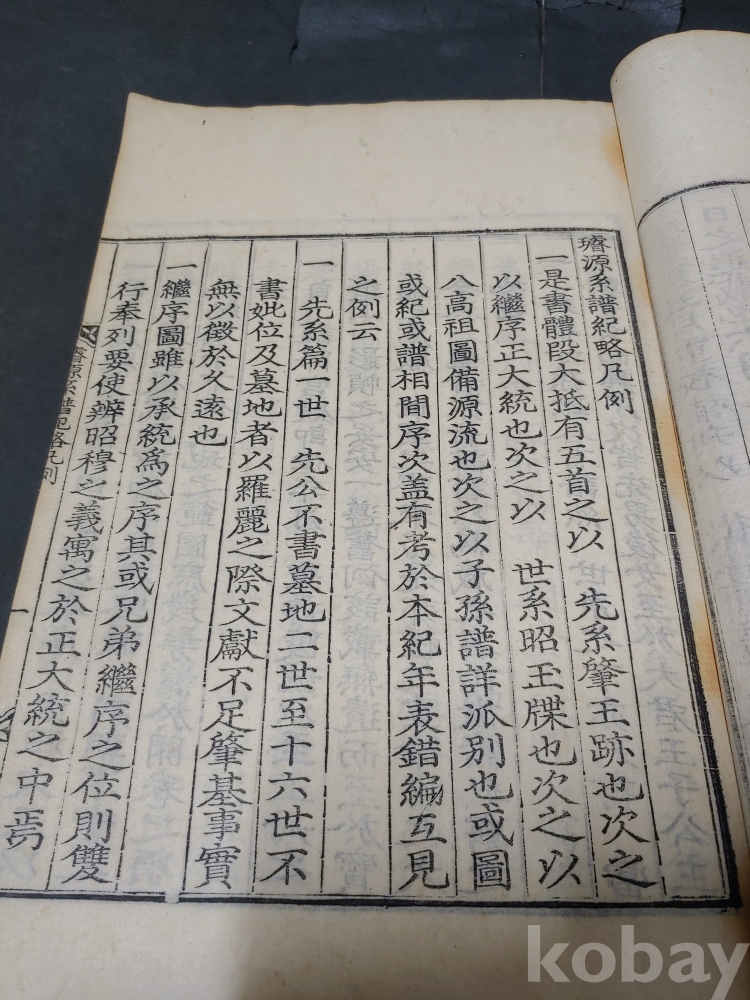 璿源系譜紀略凡例
一是書體段大抵有五首之以　先系肇王跡也次之
以繼序正大統也次之以　世系昭王牒也次之以
八高祖圖備源流也次之以子孫譜詳派別也或圖
或紀或譜相間序次盖有考於本紀年表錯編互見
之例云
一　先系篇一世　先公不書墓地二世至十六世不
書妣位及墓地者以羅麗之際文獻不足肇基事實
無以徵於久遠也
一繼序圖雖以承統爲之序其或兄弟繼序之位則雙
行奉列要使辨昭穆之義寓之於正大統之中焉
璿源系譜紀略凡例
一
kobay